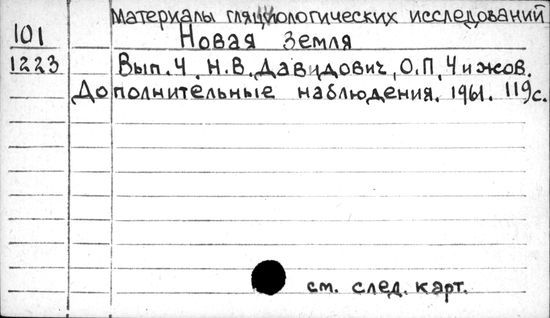 Материалы гляциологических исследований
101 Новая Земля
1223 Вып. 4. Н.В. Давидович, О.П. Чижов.
Дополнительные наблюдения. 1961. 119с.
см. след. карт.